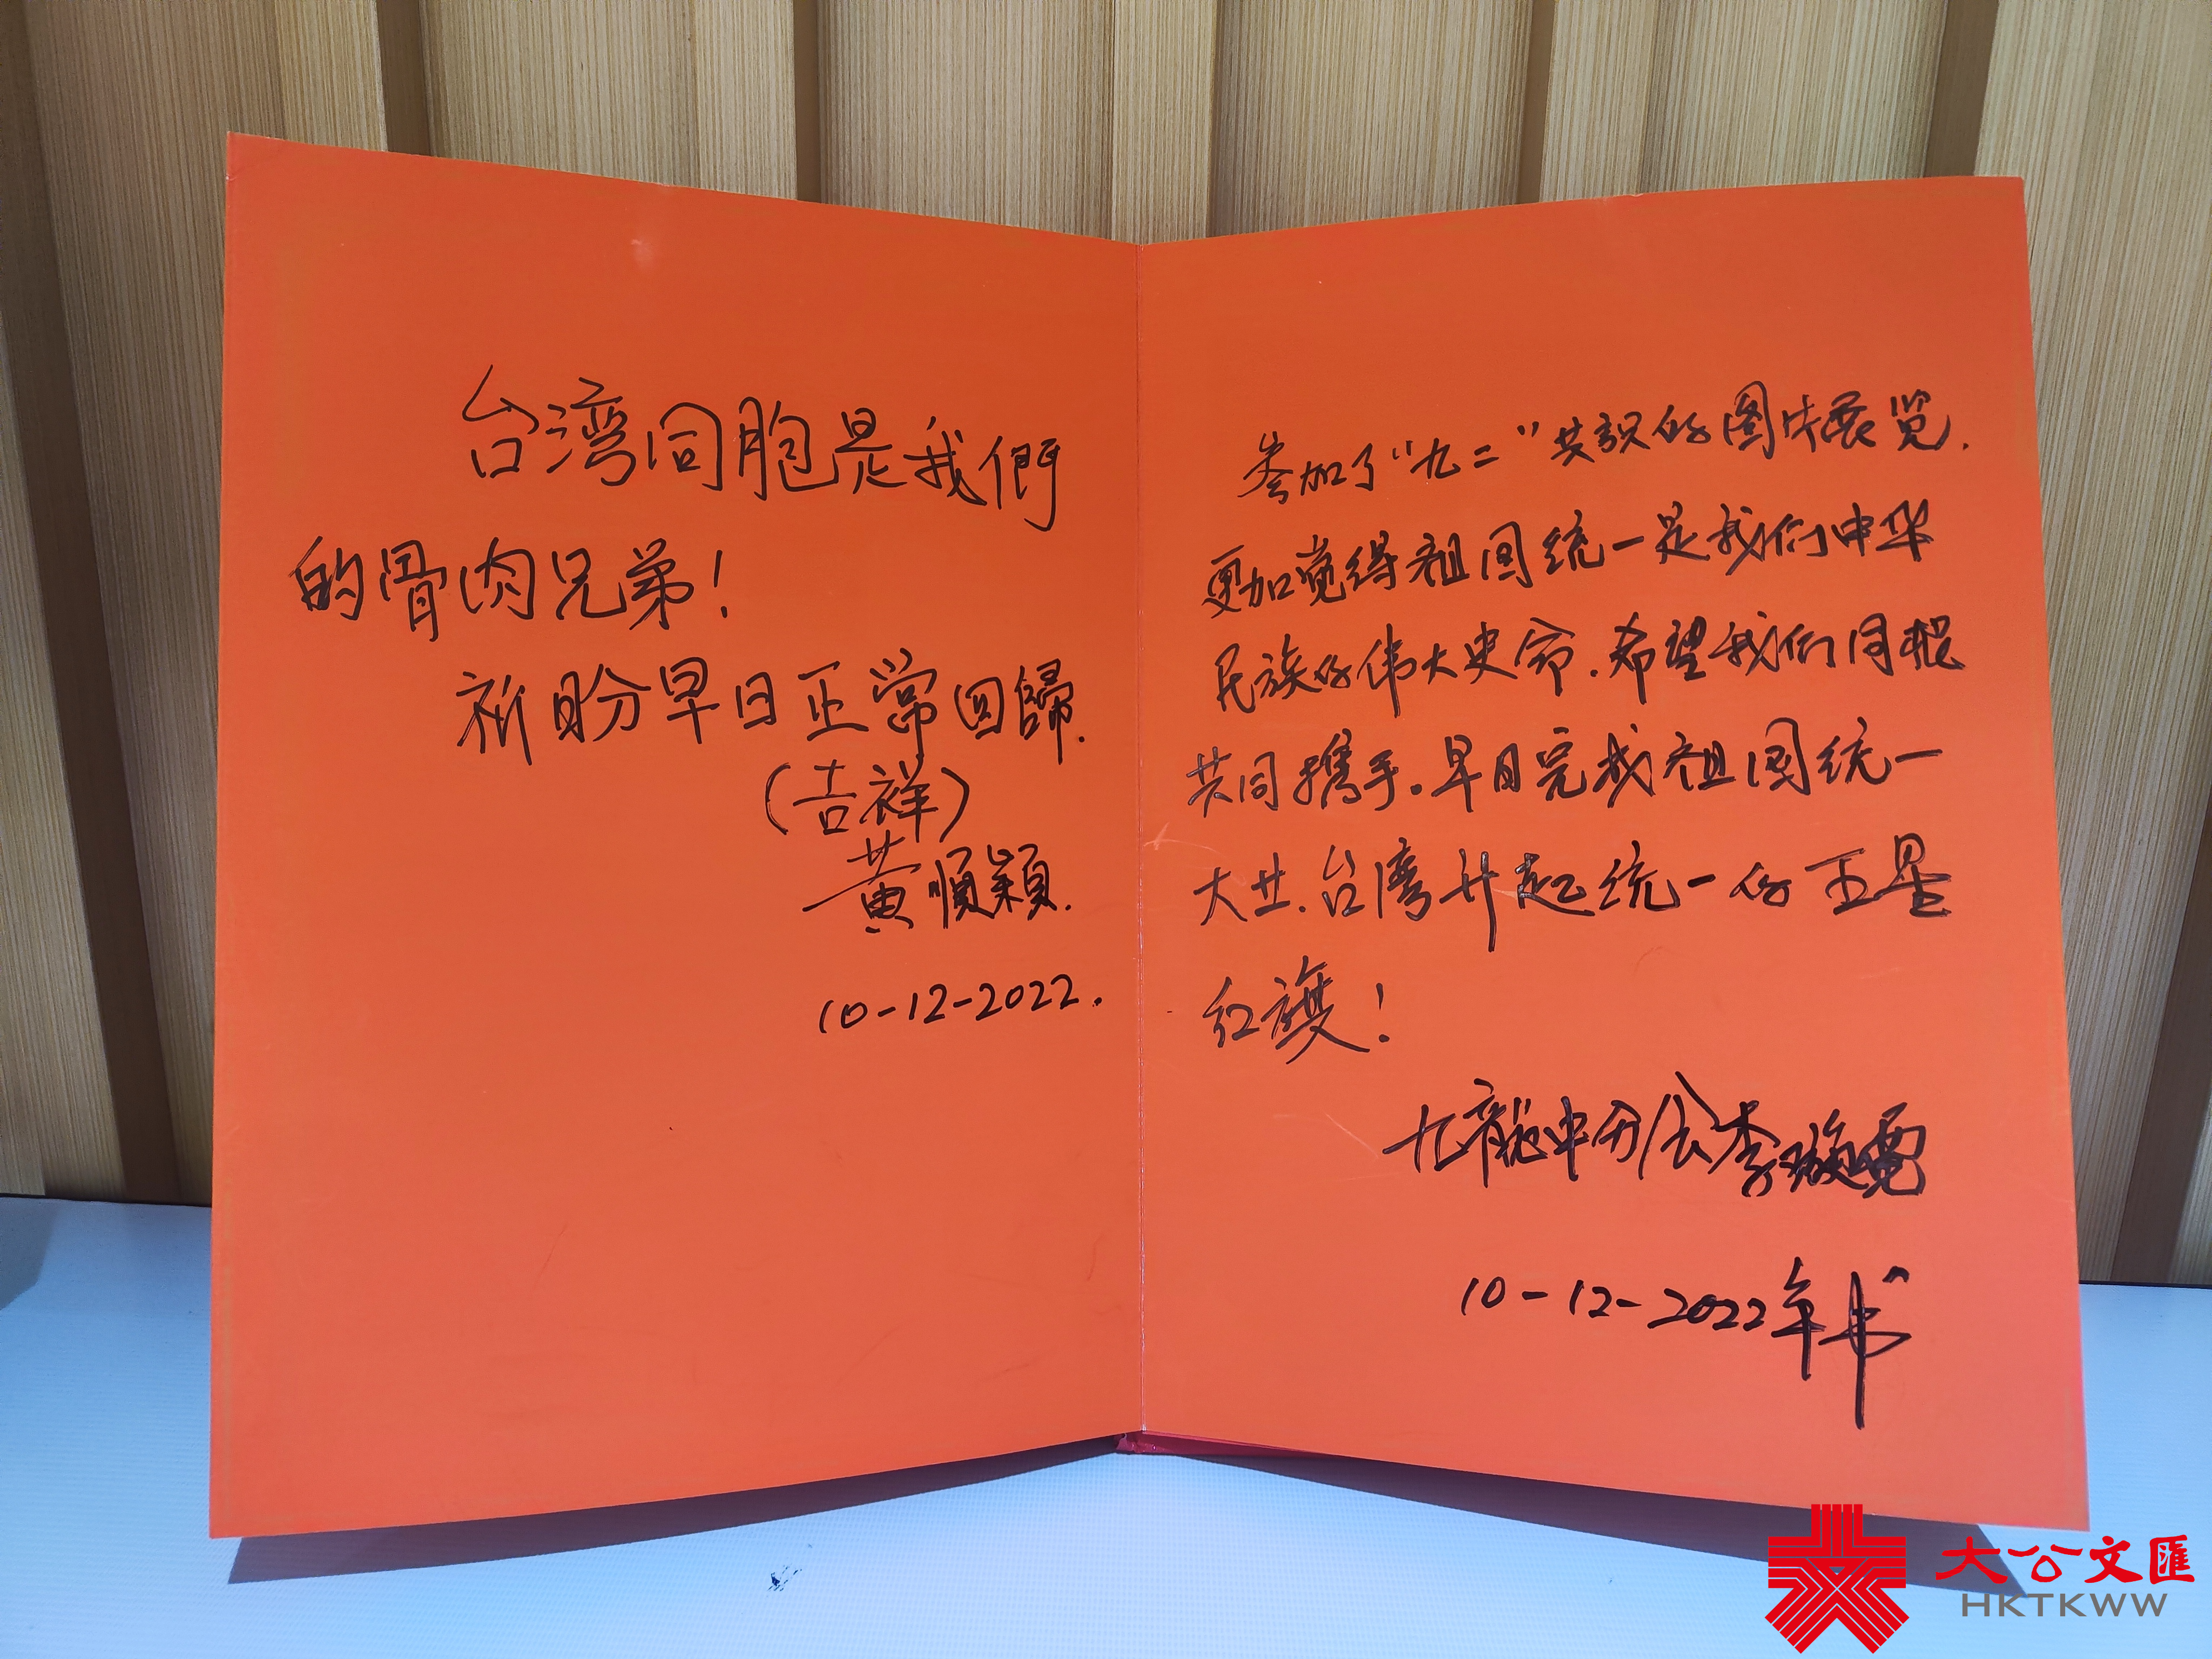 台湾同胞是我們
的骨肉兄弟！
祈盼早日正常回歸.
（吉祥）
黄順穎.
10-12-2022.
参加了“九二”共识的图片展览.
更加觉得祖国统一是我们中华
民族的伟大史命.希望我们同根
共同携手。早日完成祖国统一
大业.台湾升起统一的五星
红旗！
九龍中分会李璇霓
10-12-2022年书
大公文匯
HKTKWW